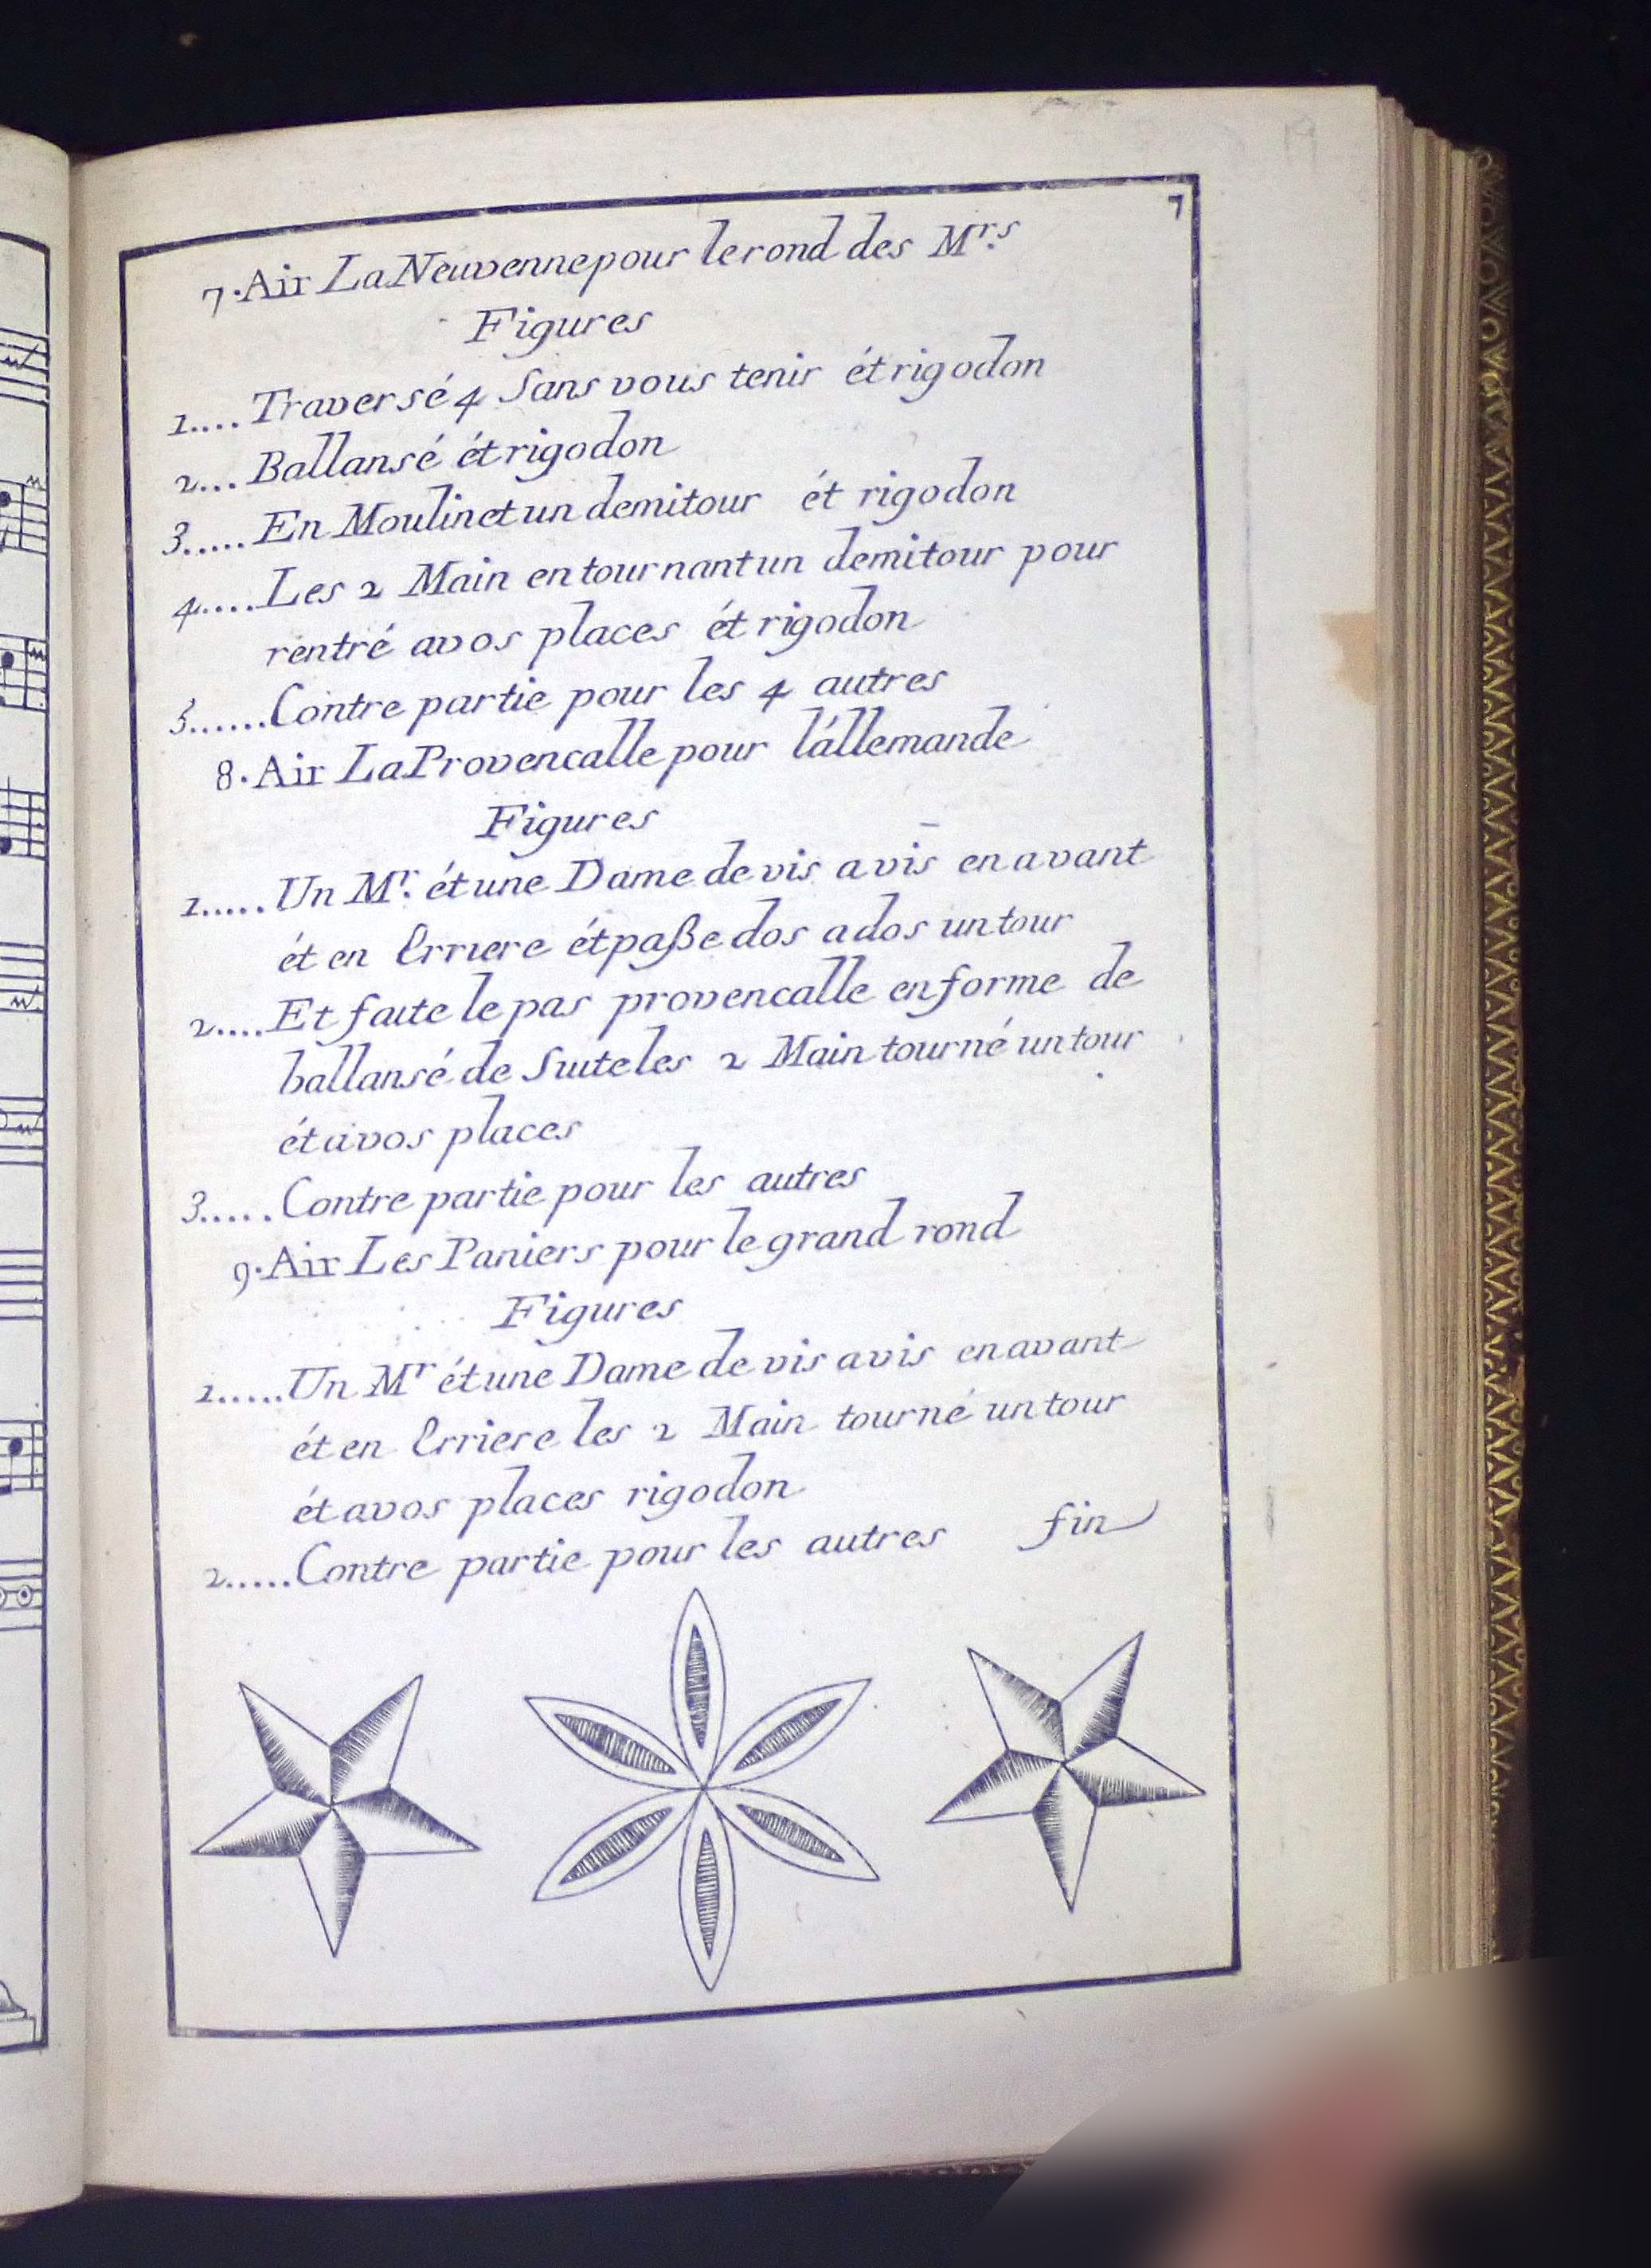 7
7. Air La Neuvenne pour le rond des Mrs.
Figures
1.... Traversé 4 Sans vous tenir ét rigodon
2... Ballansé ét rigodon
3..... En Moulinet un demi tour ét rigodon
4..... Les 2 Main en tournant un demi tour pour
rentré a vos places ét rigodon
5...... Contre partie pour les 4 autres
8. Air La Provencalle pour l'állemande
Figures
1..... Un Mr. ét une Dame de vis a vis en avant
ét en Erriere ét paße dos a dos un tour
2.... Et faite le pas provencalle en forme de
ballansé de Suite les 2 Main tourné un tour
ét a vos places
3..... Contre partie pour les autres
9. Air Les Paniers pour le grand rond
Figures
1..... Un Mr ét une Dame de vis a vis en avant
ét en Erriere les 2 Main tourné un tour
ét a vos places rigodon
2..... Contre partie pour les autres fin